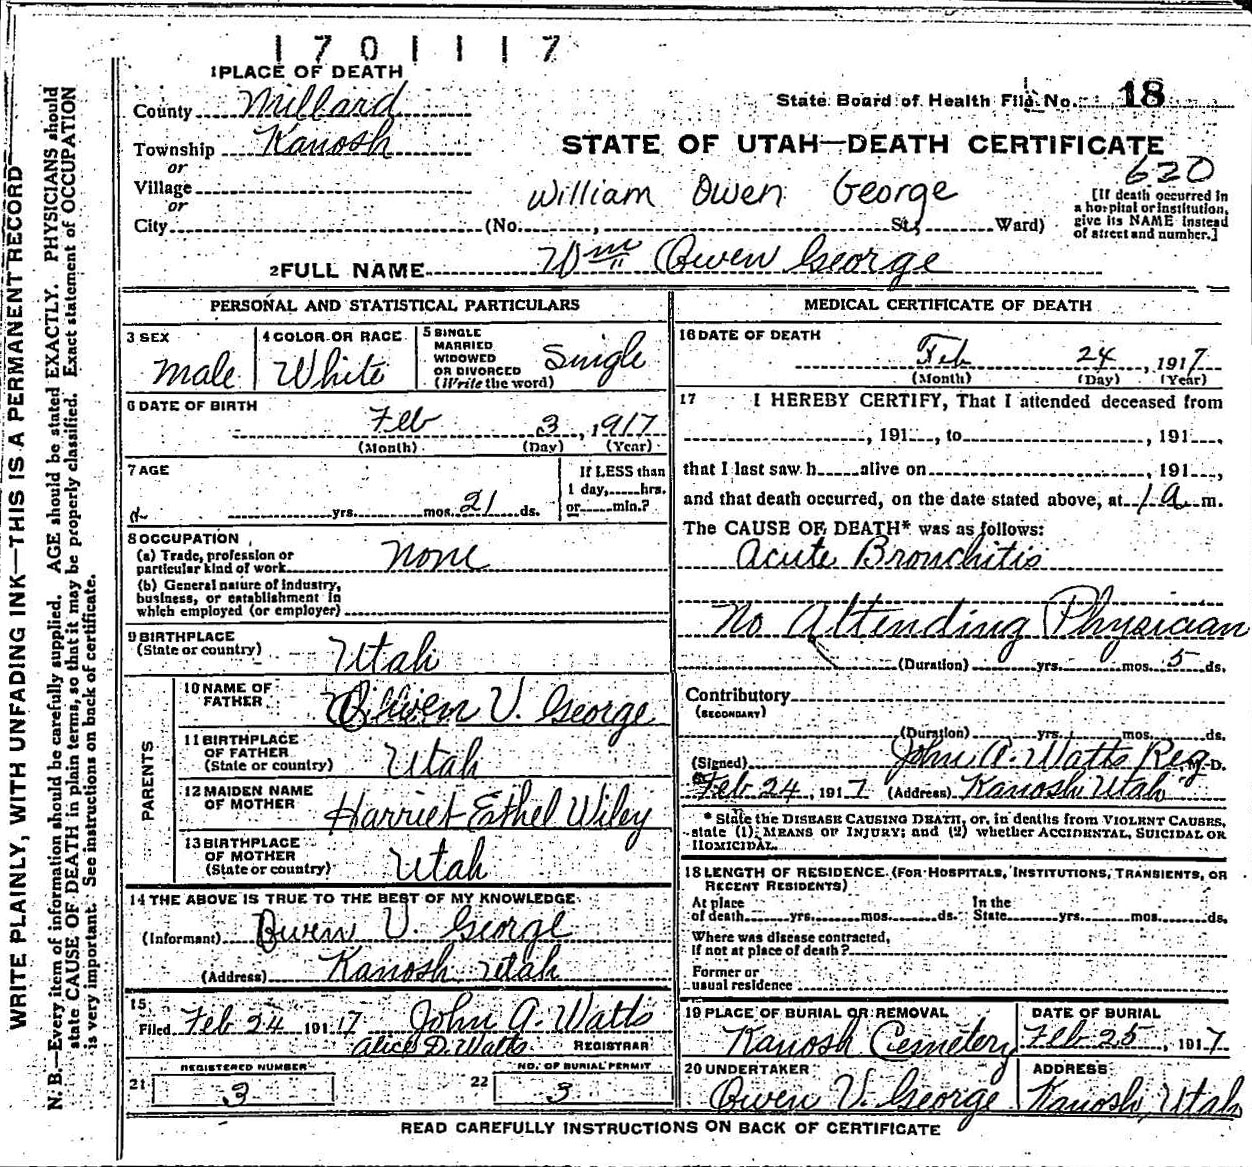 1701117
1 PLACE OF DEATH
County Millard
State Board of Health File No. 18
Township Kanosh
STATE OF UTAH—DEATH CERTIFICATE
or
620
Village
William Owen George
[If death occurred in
a hospital or institution,
give its NAME instead
of street and number.]
or
City (No. , St., Ward)
2 FULL NAME Wm Owen George
PERSONAL AND STATISTICAL PARTICULARS
3 SEX
Male
4 COLOR OR RACE
White
5 SINGLE
MARRIED
WIDOWED
OR DIVORCED
(Write the word)
Single
6 DATE OF BIRTH
Feb 3, 1917
(Month) (Day) (Year)
7 AGE
yrs. mos. 21 ds.
If LESS than
1 day, hrs.
or min.?
8 OCCUPATION
(a) Trade, profession or
particular kind of work None
(b) General nature of industry,
business, or establishment in
which employed (or employer)
9 BIRTHPLACE
(State or country) Utah
PARENTS
10 NAME OF
FATHER Owen V. George
11 BIRTHPLACE
OF FATHER
(State or country) Utah
12 MAIDEN NAME
OF MOTHER Harriet Ethel Wiley
13 BIRTHPLACE
OF MOTHER
(State or country) Utah
14 THE ABOVE IS TRUE TO THE BEST OF MY KNOWLEDGE
(Informant) Owen V. George
(Address) Kanosh, Utah
15
Filed Feb 24 191 17 John A. Watts
Alice D. Watts REGISTRAR
REGISTERED NUMBER
21 3
NO. OF BURIAL PERMIT
22 3
MEDICAL CERTIFICATE OF DEATH
16 DATE OF DEATH
Feb 24, 1917
(Month) (Day) (Year)
17 I HEREBY CERTIFY, That I attended deceased from
, 191 , to , 191 ,
that I last saw h alive on , 191 ,
and that death occurred, on the date stated above, at 1 a m.
The CAUSE OF DEATH* was as follows:
Acute Bronchitis
No Attending Physician
(Duration) yrs. mos. 5 ds.
Contributory
(SECONDARY)
(Duration) yrs. mos. ds.
(Signed) John A. Watts Reg M.D.
Feb 24, 1917 (Address) Kanosh Utah
* State the DISEASE CAUSING DEATH, or, in deaths from VIOLENT CAUSES,
state (1) MEANS OF INJURY; and (2) whether ACCIDENTAL, SUICIDAL OR
HOMICIDAL.
18 LENGTH OF RESIDENCE (FOR HOSPITALS, INSTITUTIONS, TRANSIENTS, OR
RECENT RESIDENTS)
At place
of death yrs. mos. ds.
In the
State yrs. mos. ds.
Where was disease contracted,
if not at place of death?
Former or
usual residence
19 PLACE OF BURIAL OR REMOVAL
Kanosh Cemetery
DATE OF BURIAL
Feb 25, 1917
20 UNDERTAKER
Owen V. George
ADDRESS
Kanosh, Utah
READ CAREFULLY INSTRUCTIONS ON BACK OF CERTIFICATE
WRITE PLAINLY, WITH UNFADING INK—THIS IS A PERMANENT RECORD
N. B.—Every item of information should be carefully supplied. AGE should be stated EXACTLY. PHYSICIANS should
state CAUSE OF DEATH in plain terms, so that it may be properly classified. Exact statement of OCCUPATION
is very important. See instructions on back of certificate.